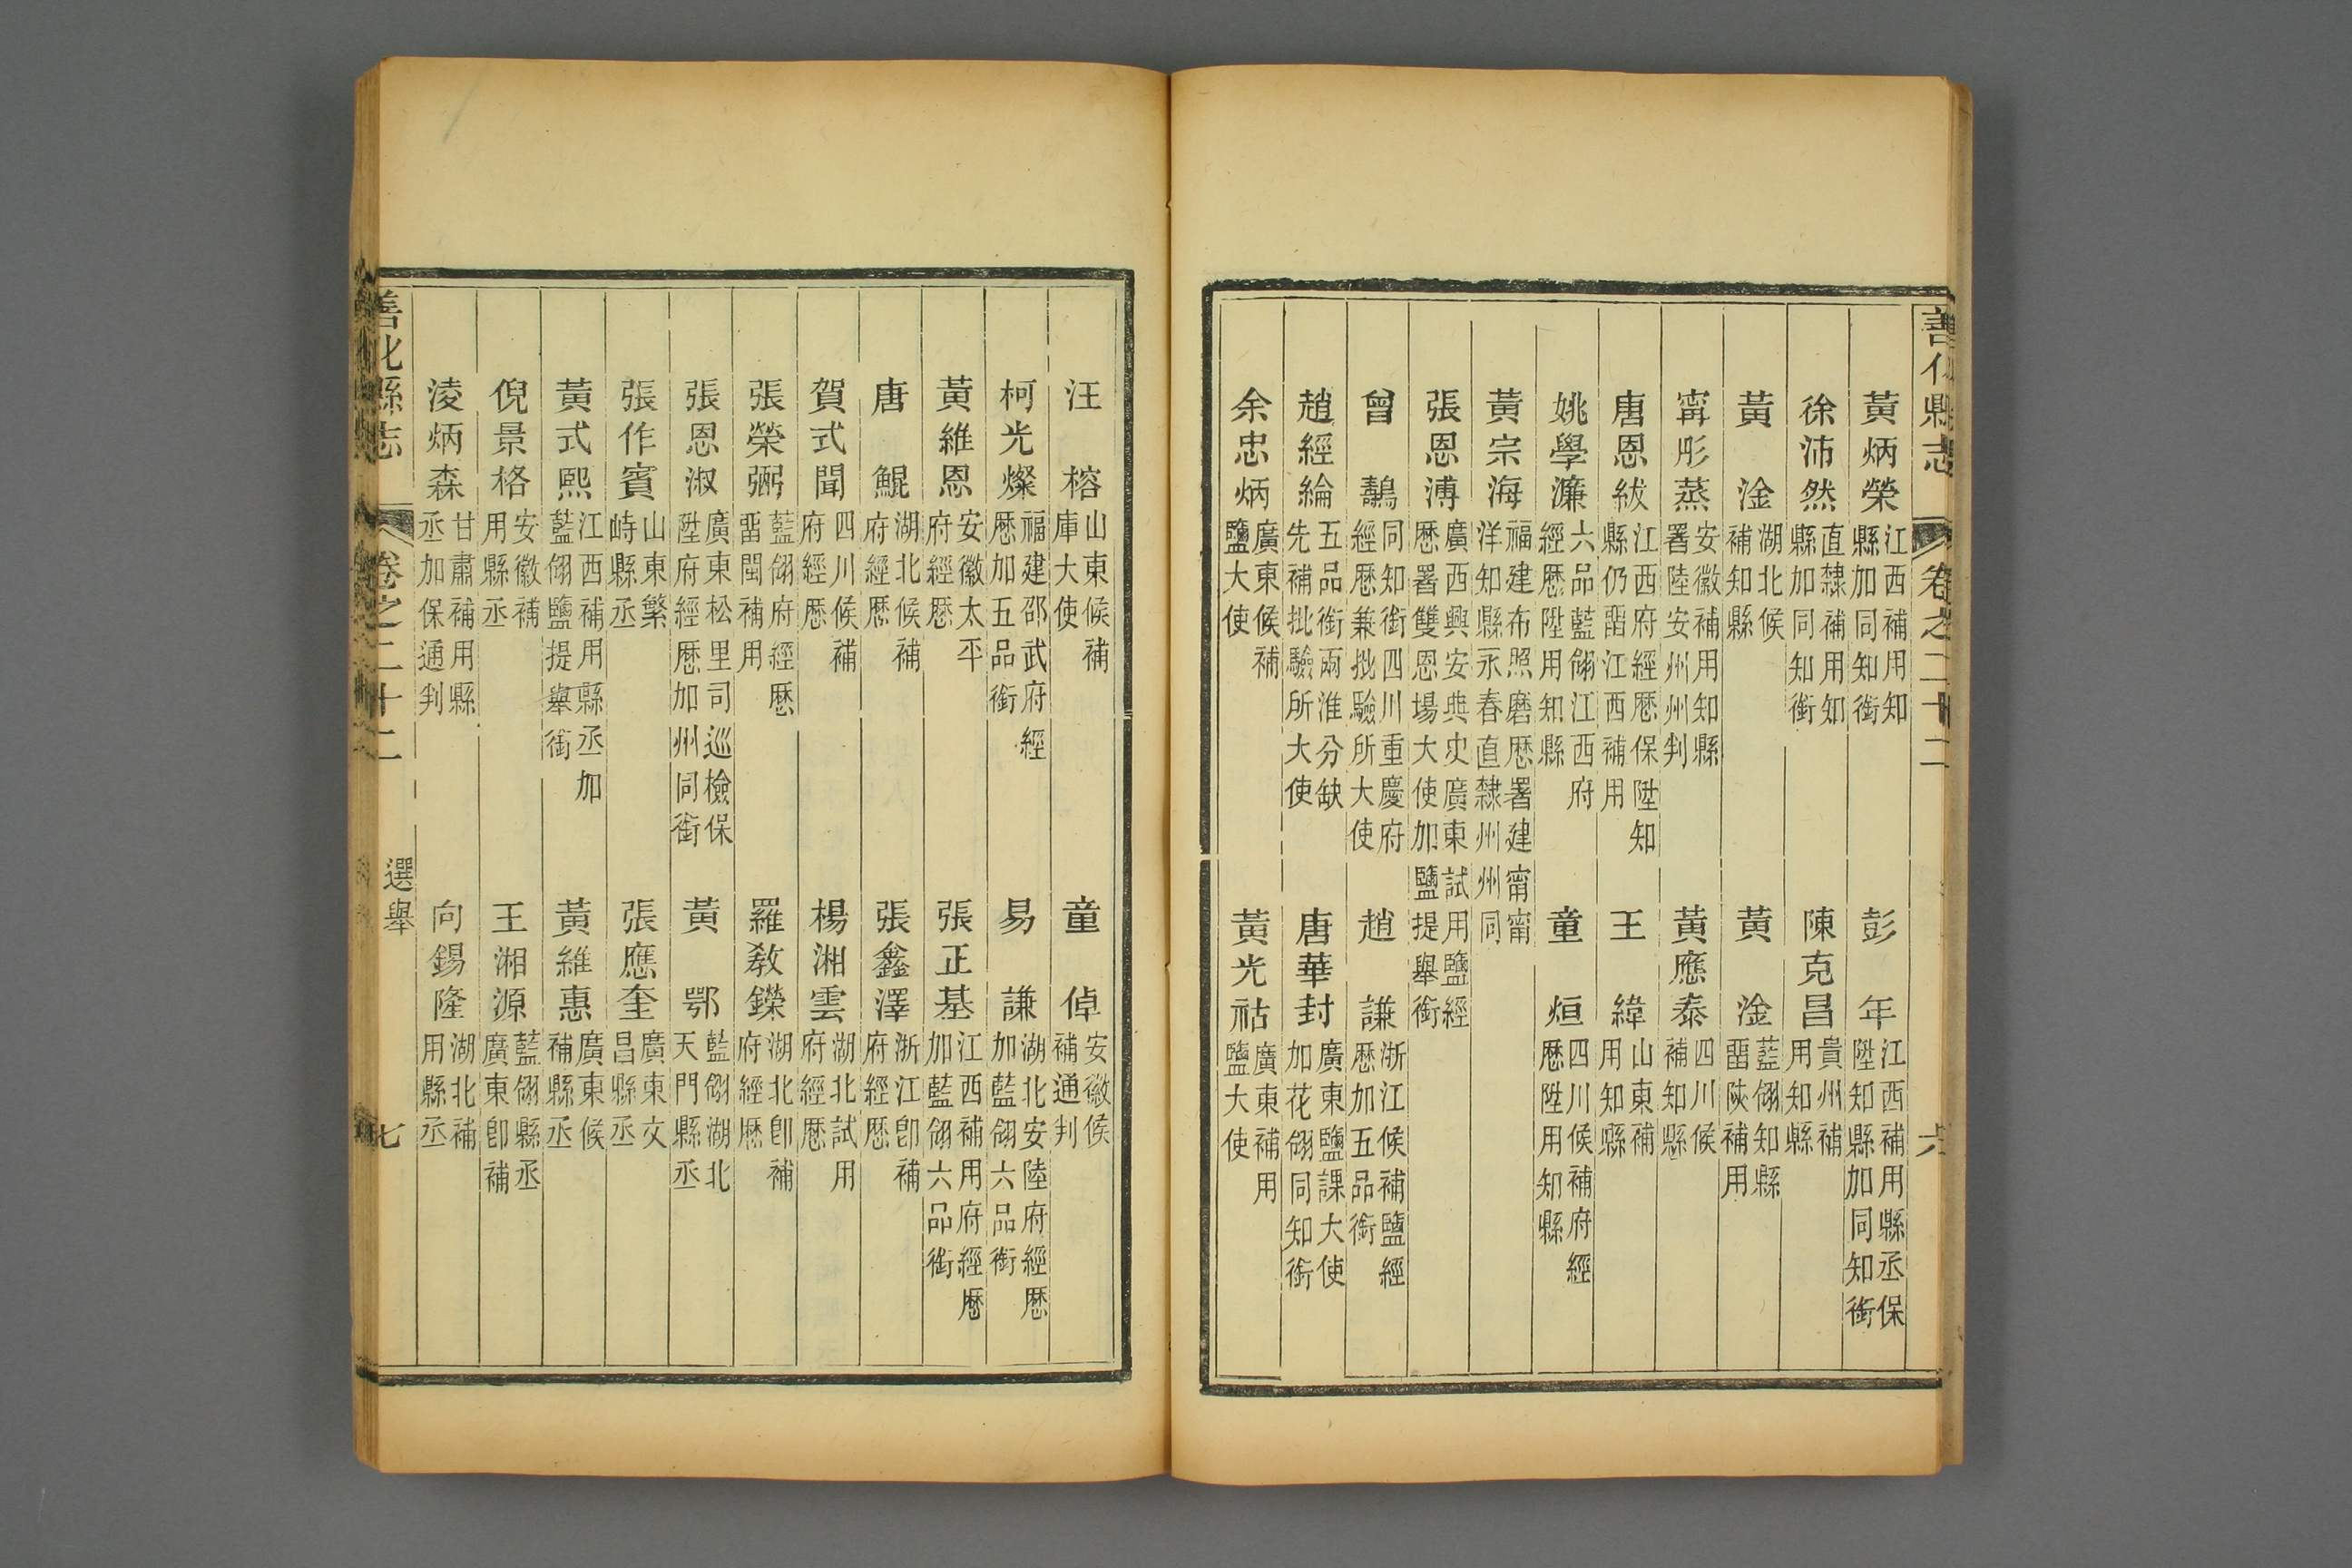 善化縣志 卷之二十二 六
黃炳榮 江西補用知縣加同知銜 彭年 江西補用縣丞保陞知縣加同知銜
徐沛然 直隸補用知縣加同知銜 陳克昌 貴州補用知縣
黃淦 湖北候補知縣 黃淦 藍翎知縣畱陝補用
甯彤蒸 安徽補用知縣署陸安州州判 黃應泰 四川候補知縣
唐恩紱 江西府經歷保陞知縣仍畱江西補用 王緯 山東補用知縣
姚學濂 六品藍翎江西府經歷陞用知縣 童烜 四川候補府經歷陞用知縣
黃宗海 福建布照磨歷署建甯甯洋知縣永春直隸州州同
張恩溥 廣西興安典史廣東試用鹽經歷署雙恩場大使加鹽提舉銜
曾鷸 同知銜四川重慶府經歷兼批驗所大使 趙謙 浙江候補鹽經歷加五品銜
趙經綸 五品銜兩淮分缺先補批驗所大使 唐華封 廣東鹽課大使加花翎同知銜
余忠炳 廣東候補鹽大使 黃光祜 廣東補用鹽大使
汪榕 山東候補庫大使 童倬 安徽候補通判
柯光燦 福建邵武府經歷加五品銜 易謙 湖北安陸府經歷加藍翎六品銜
黃維恩 安徽太平府經歷 張正基 江西補用府經歷加藍翎六品銜
唐鯤 湖北候補府經歷 張鑫澤 浙江卽補府經歷
賀式聞 四川候補府經歷 楊湘雲 湖北試用府經歷
張榮弼 藍翎府經歷畱閩補用 羅敎鑅 湖北卽補府經歷
張恩淑 廣東松里司巡檢保陞府經歷加州同銜 黃鄂 藍翎湖北天門縣丞
張作賓 山東繁峙縣丞 張應奎 廣東文昌縣丞
黃式熙 江西補用縣丞加藍翎鹽提舉銜 黃維惠 廣東候補縣丞
倪景格 安徽補用縣丞 王湘源 藍翎縣丞廣東卽補
淩炳森 甘肅補用縣丞加保通判 向錫隆 湖北補用縣丞
善化縣志 卷之二十二 選舉 七